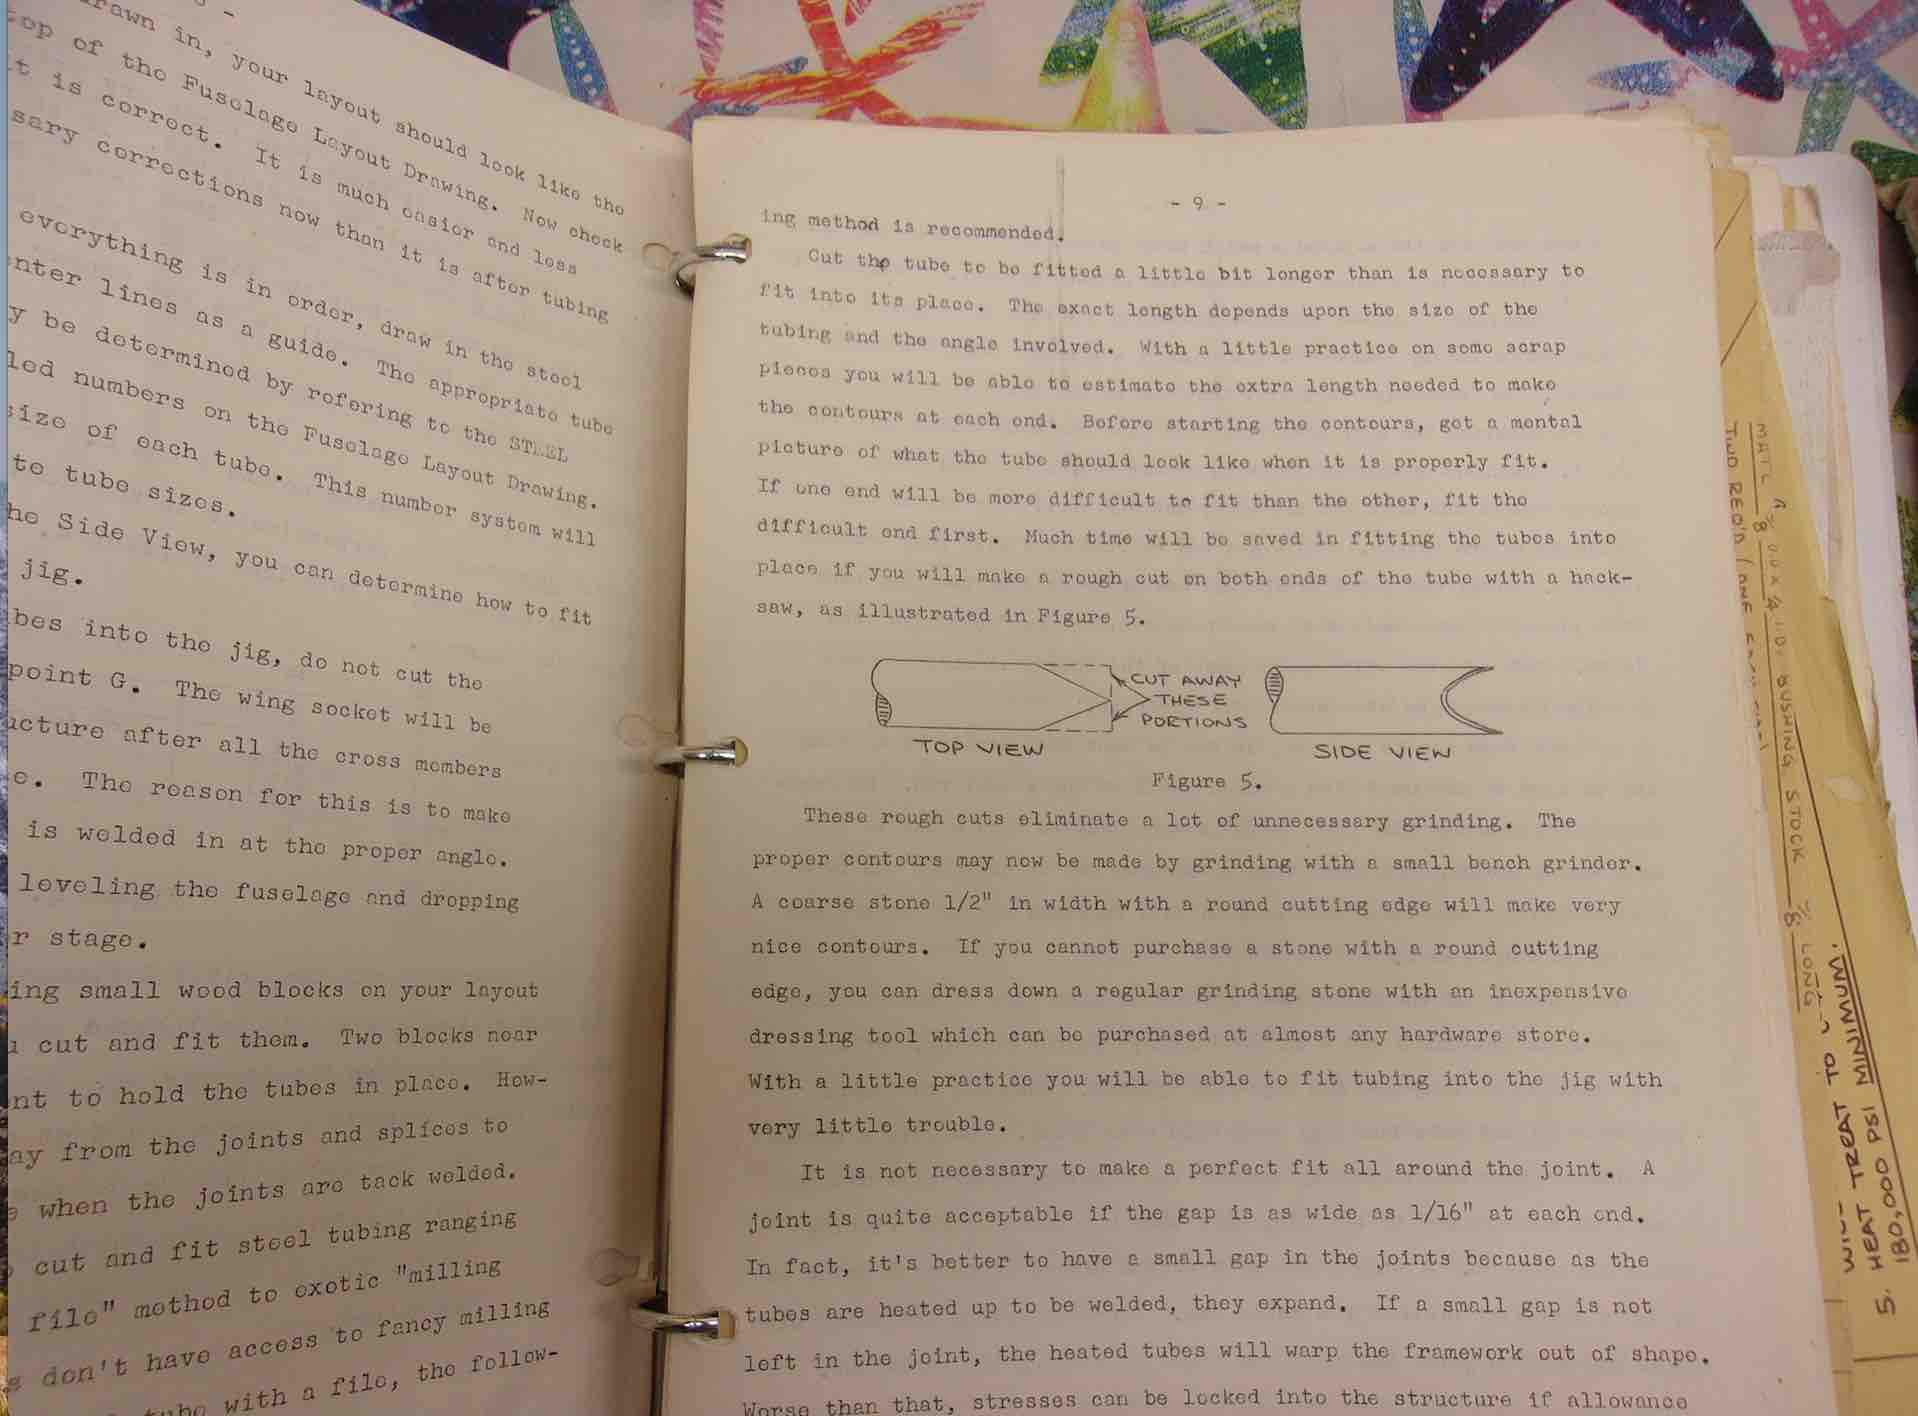 rawn in, your layout should look like the
top of the Fuselage Layout Drawing. Now check
t is correct. It is much easier and less
sary corrections now than it is after tubing
everything is in order, draw in the steel
nter lines as a guide. The appropriate tube
y be determined by refering to the STEEL
led numbers on the Fuselage Layout Drawing.
size of each tube. This number system will
to tube sizes.
he Side View, you can determine how to fit
jig.
bes into the jig, do not cut the
point G. The wing socket will be
ucture after all the cross members
e. The reason for this is to make
is welded in at the proper angle.
leveling the fuselage and dropping
r stage.
ing small wood blocks on your layout
u cut and fit them. Two blocks near
nt to hold the tubes in place. How-
ay from the joints and splices to
e when the joints are tack welded.
cut and fit steel tubing ranging
file" method to exotic "milling
s don't have access to fancy milling
tube with a file, the follow-
- 9 -
ing method is recommended.
Cut the tube to be fitted a little bit longer than is necessary to
fit into its place. The exact length depends upon the size of the
tubing and the angle involved. With a little practice on some scrap
pieces you will be able to estimate the extra length needed to make
the contours at each end. Before starting the contours, get a mental
picture of what the tube should look like when it is properly fit.
If one end will be more difficult to fit than the other, fit the
difficult end first. Much time will be saved in fitting the tubes into
place if you will make a rough cut on both ends of the tube with a hack-
saw, as illustrated in Figure 5.
CUT AWAY
THESE
PORTIONS
TOP VIEW
SIDE VIEW
Figure 5.
These rough cuts eliminate a lot of unnecessary grinding. The
proper contours may now be made by grinding with a small bench grinder.
A coarse stone 1/2" in width with a round cutting edge will make very
nice contours. If you cannot purchase a stone with a round cutting
edge, you can dress down a regular grinding stone with an inexpensive
dressing tool which can be purchased at almost any hardware store.
With a little practice you will be able to fit tubing into the jig with
very little trouble.
It is not necessary to make a perfect fit all around the joint. A
joint is quite acceptable if the gap is as wide as 1/16" at each end.
In fact, it's better to have a small gap in the joints because as the
tubes are heated up to be welded, they expand. If a small gap is not
left in the joint, the heated tubes will warp the framework out of shape.
Worse than that, stresses can be locked into the structure if allowance
TWO REQ'D (ONE
MATL
BUSHING STOCK
LONG
HEAT TREAT TO
5. HEAT TREAT TO
180,000 PSI MINIMUM.